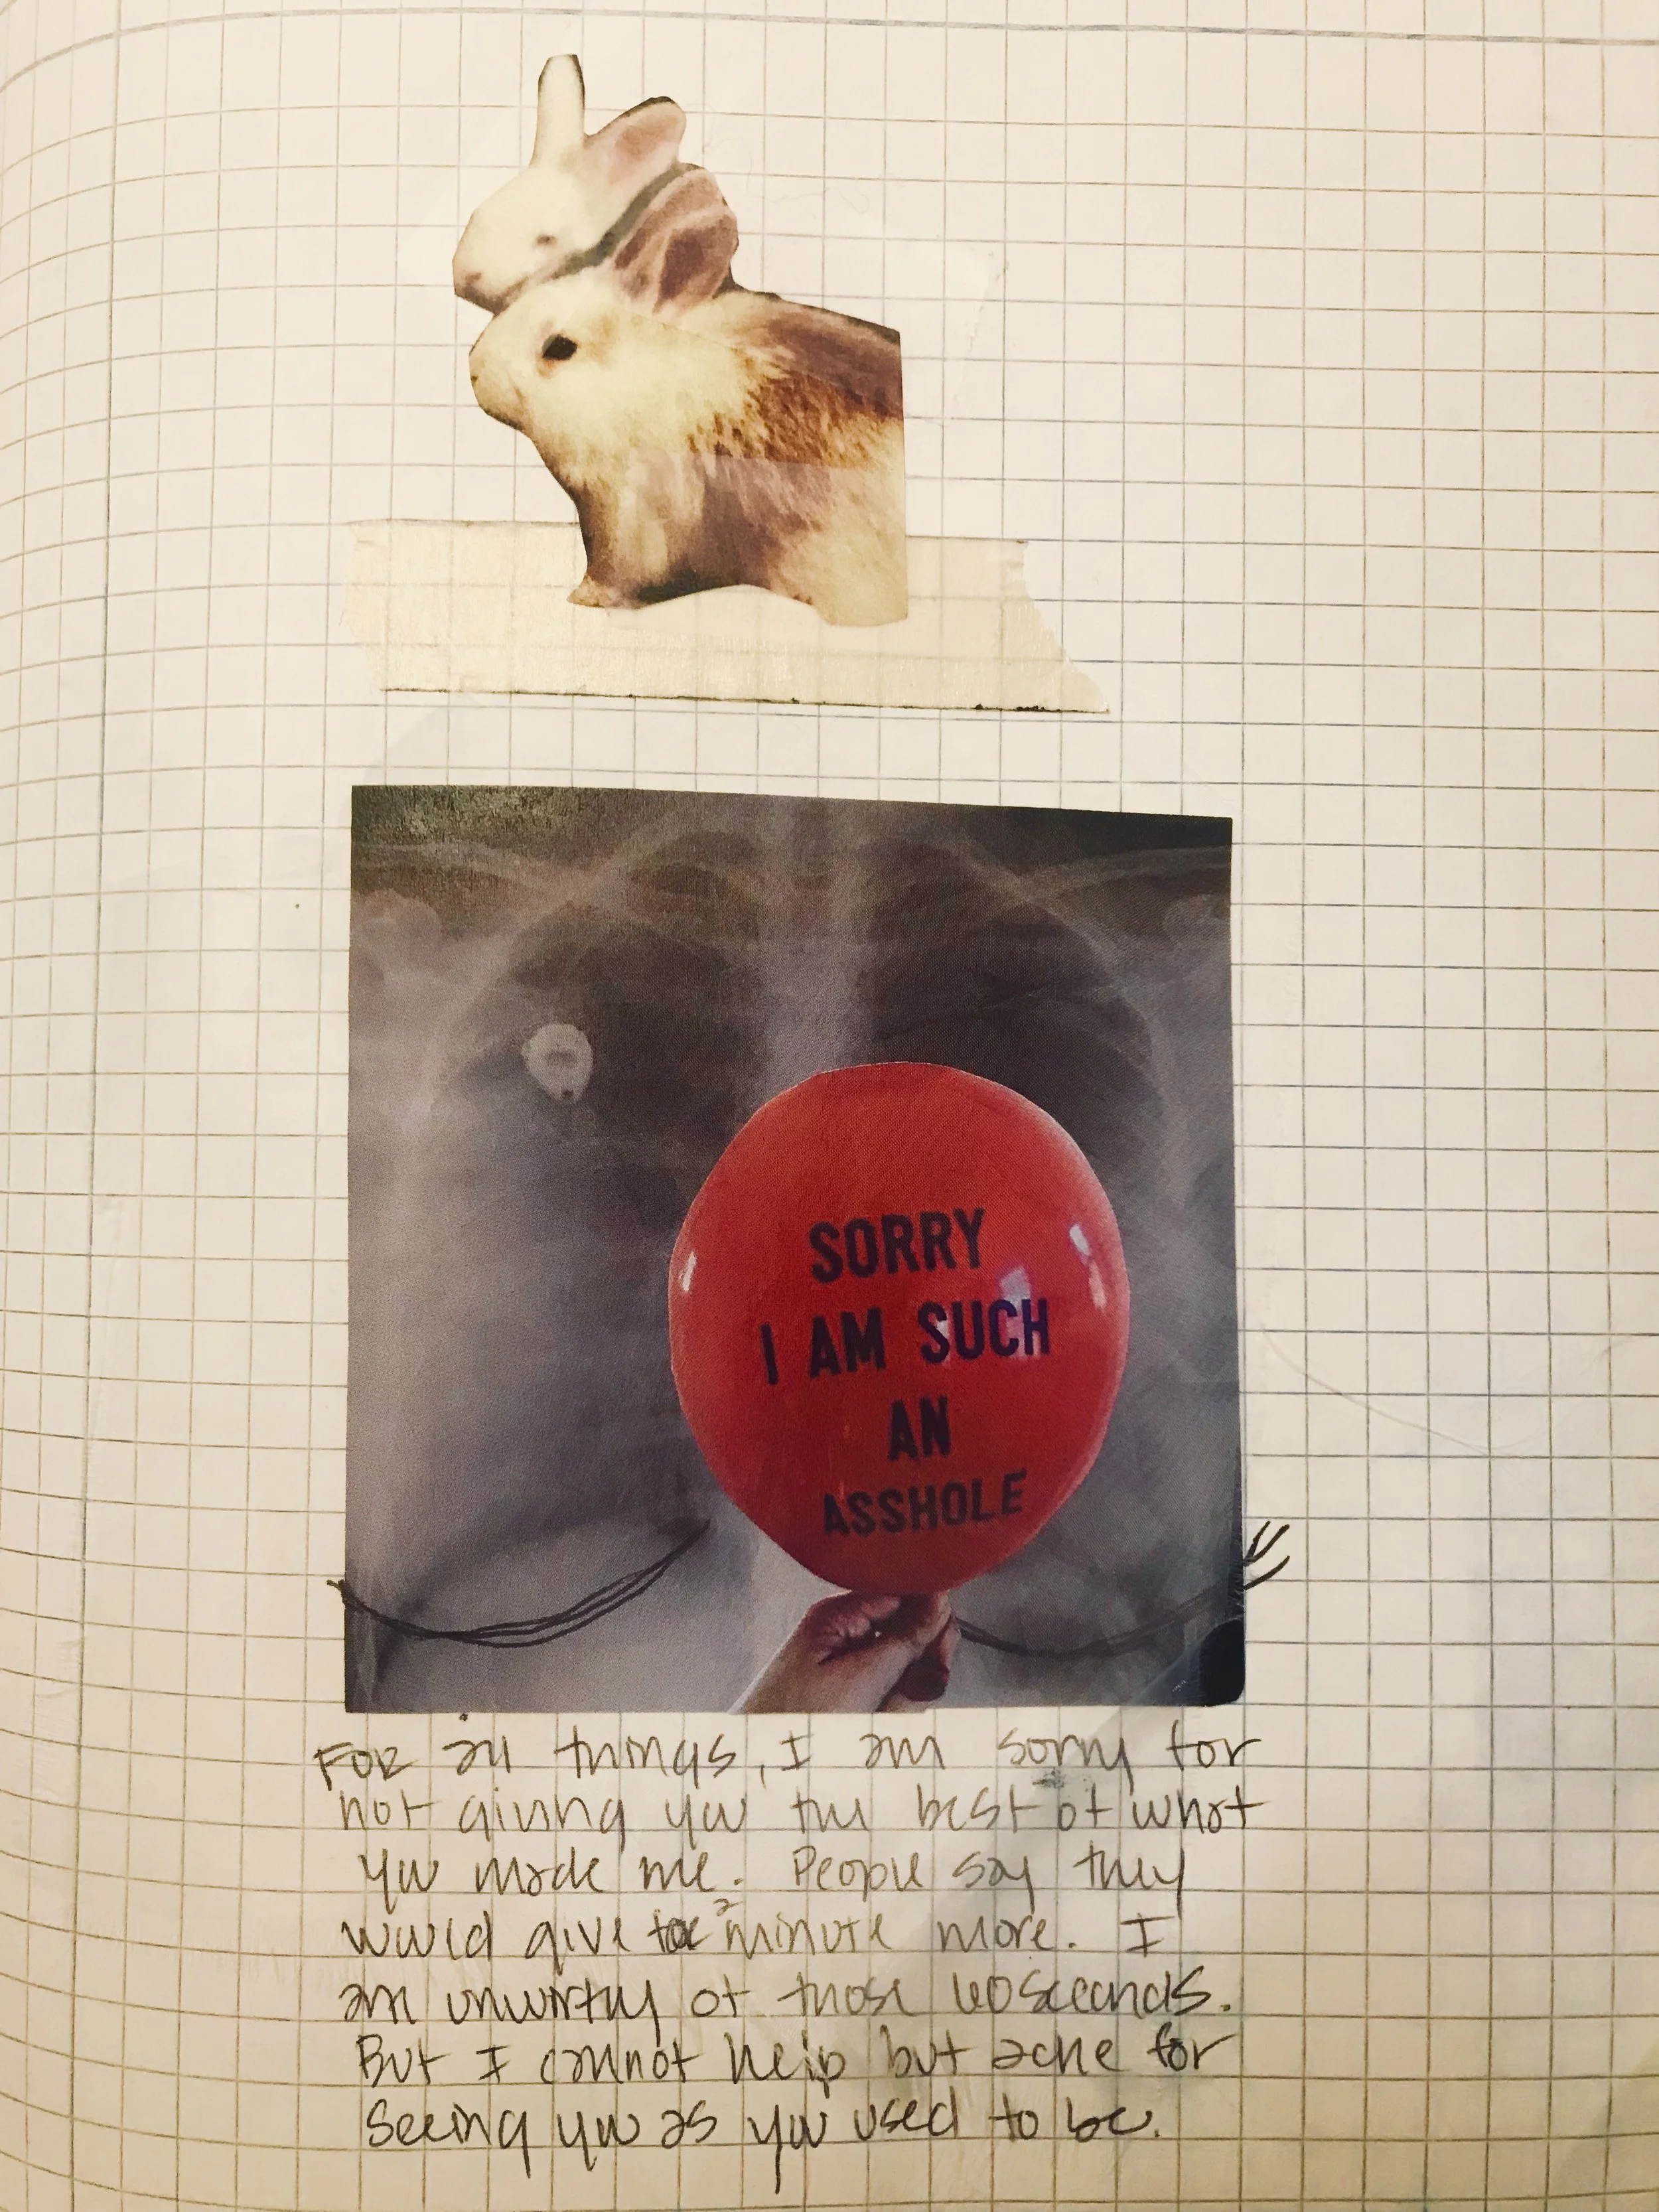 SORRY
I AM SUCH
AN
ASSHOLE
FOR all things, I am sorry for
not giving you the best of what
you made me. People say they
would give a minute more. I
am unworthy of those 60 seconds.
But I cannot help but ache for
seeing you as you used to be.